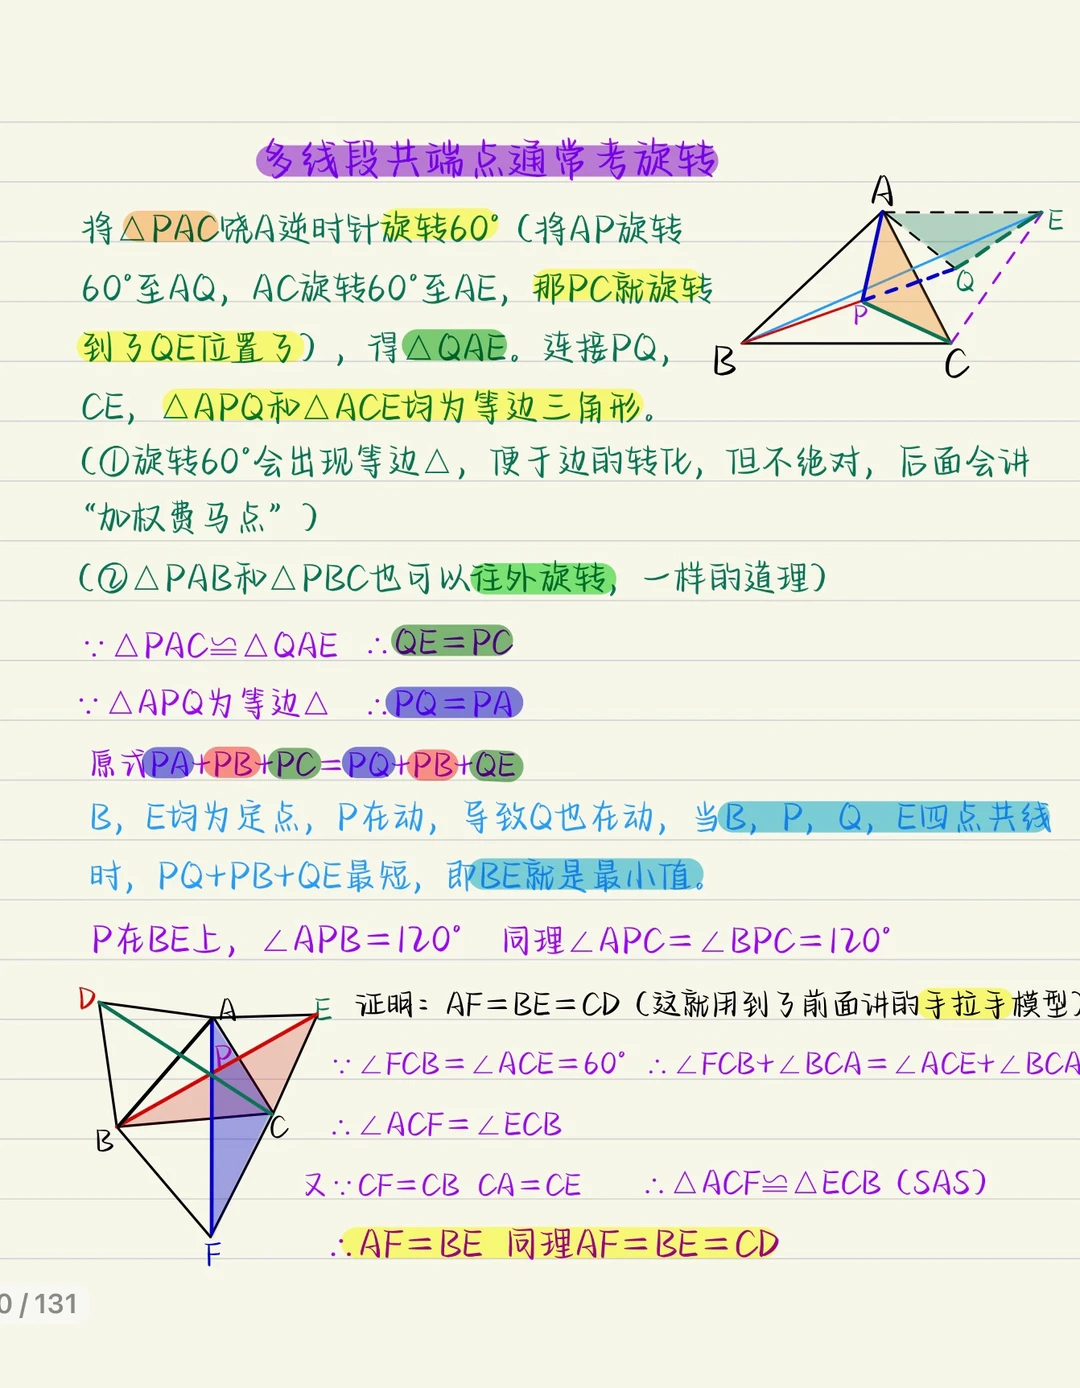 多线段共端点通常考旋转
将△PAC饶A逆时针旋转60°（将AP旋转
60°至AQ，AC旋转60°至AE，那PC就旋转
到了QE位置了），得△QAE。连接PQ，
CE，△APQ和△ACE均为等边三角形。
（①旋转60°会出现等边△，便于边的转化，但不绝对，后面会讲
“加权费马点”）
（②△PAB和△PBC也可以往外旋转，一样的道理）
∵△PAC≌△QAE ∴QE=PC
∵△APQ为等边△ ∴PQ=PA
原式PA+PB+PC=PQ+PB+QE
B，E均为定点，P在动，导致Q也在动，当B，P，Q，E四点共线
时，PQ+PB+QE最短，即BE就是最小值。
P在BE上，∠APB=120° 同理∠APC=∠BPC=120°
证明：AF=BE=CD（这就用到了前面讲的手拉手模型）
∵∠FCB=∠ACE=60° ∴∠FCB+∠BCA=∠ACE+∠BCA
∴∠ACF=∠ECB
又∵CF=CB CA=CE ∴△ACF≌△ECB（SAS）
∴AF=BE 同理AF=BE=CD
A
E
Q
P
B
C
D
A
E
P
B
C
F
0 / 131